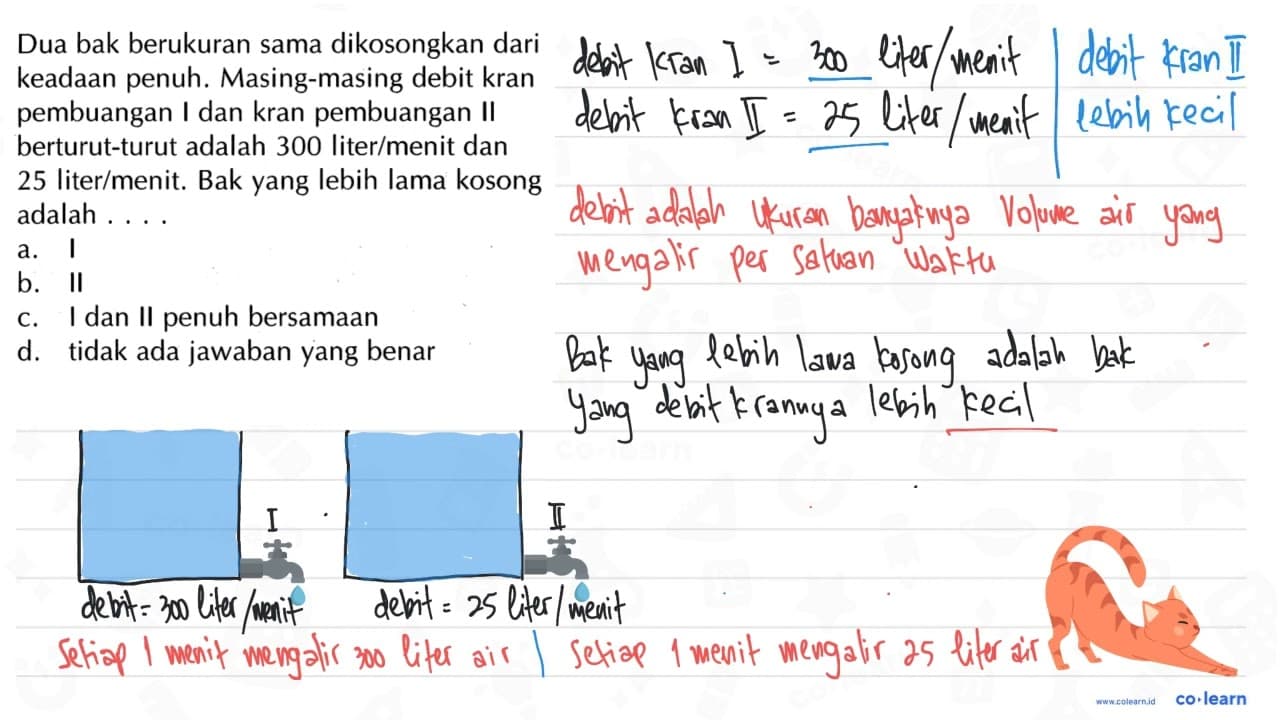 Dua bak berukuran sama dikosongkan dari
keadaan penuh. Masing-masing debit kran
pembuangan I dan kran pembuangan II
berturut-turut adalah 300 liter/menit dan
25 liter/menit. Bak yang lebih lama kosong
adalah . . . .
a. I
b. II
c. I dan II penuh bersamaan
d. tidak ada jawaban yang benar
debit kran I = 300 liter/menit
debit kran II = 25 liter/menit
debit kran II
lebih kecil
debit adalah ukuran banyaknya Volume air yang
mengalir per satuan waktu
Bak yang lebih lama kosong adalah bak
yang debit krannya lebih kecil
I
II
debit = 300 liter/menit
debit = 25 liter/menit
Setiap 1 menit mengalir 300 liter air
Setiap 1 menit mengalir 25 liter air
www.colearn.id
co·learn